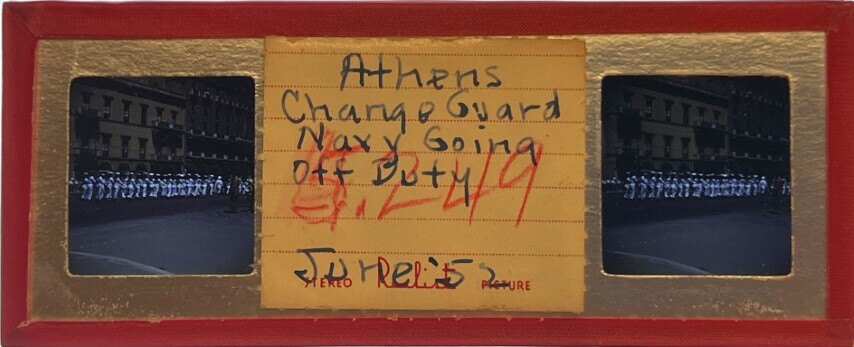 Athens
Change Guard
Navy Going
Off Duty
5.249
June '52
STEREO Realist PICTURE